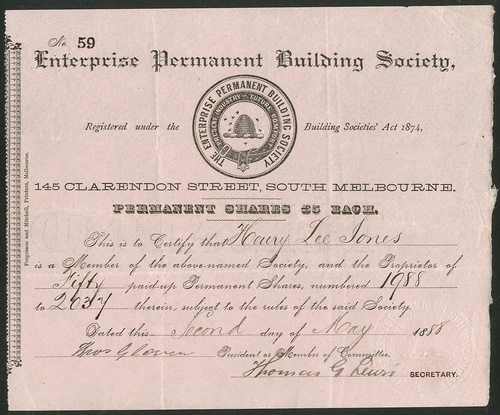 No. 59
Enterprise Permanent Building Society,
THE ENTERPRISE PERMANENT BUILDING SOCIETY
PRESENT INDUSTRY FUTURE COMFORT
Registered under the Building Societies' Act 1874,
145 CLARENDON STREET, SOUTH MELBOURNE.
PERMANENT SHARES £5 EACH.
This is to Certify that Henry Lee Jones
is a Member of the above-named Society, and the Proprietor of
Fifty paid-up Permanent Shares, numbered 1988
to 2037 therein, subject to the rules of the said Society.
Dated this Second day of May 1888
President or Member of Committee.
Thomas G Lewis SECRETARY.
Fergusson and Mitchell, Printers, Melbourne.